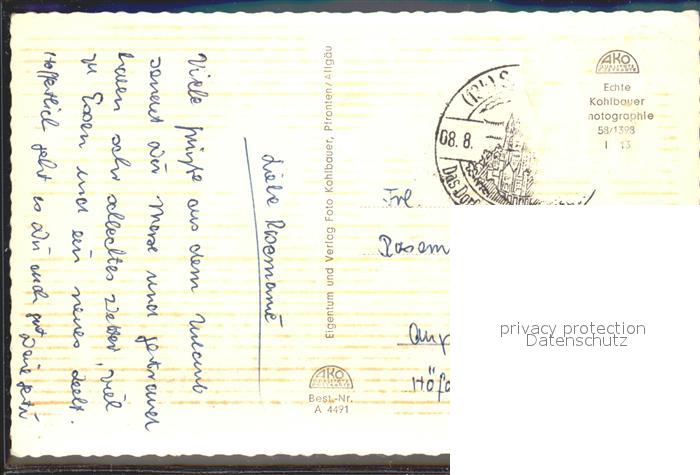 Liebe Rosemarie
Viele Grüße aus dem Urlaub
sendet Dir
haben sehr schlechtes Wetter, viel
zu Essen und ein neues
Hoffentlich geht es Dir auch gut Deine
Eigentum und Verlag Foto Kohlbauer, Pfronten/Allgäu
AKO
Best.-Nr.
A 4491
AKO
Echte
Kohlbauer
hotographie
58/1398
I 13
08. 8.
Das Dor
Frl.
Rosem
privacy protection
Datenschutz